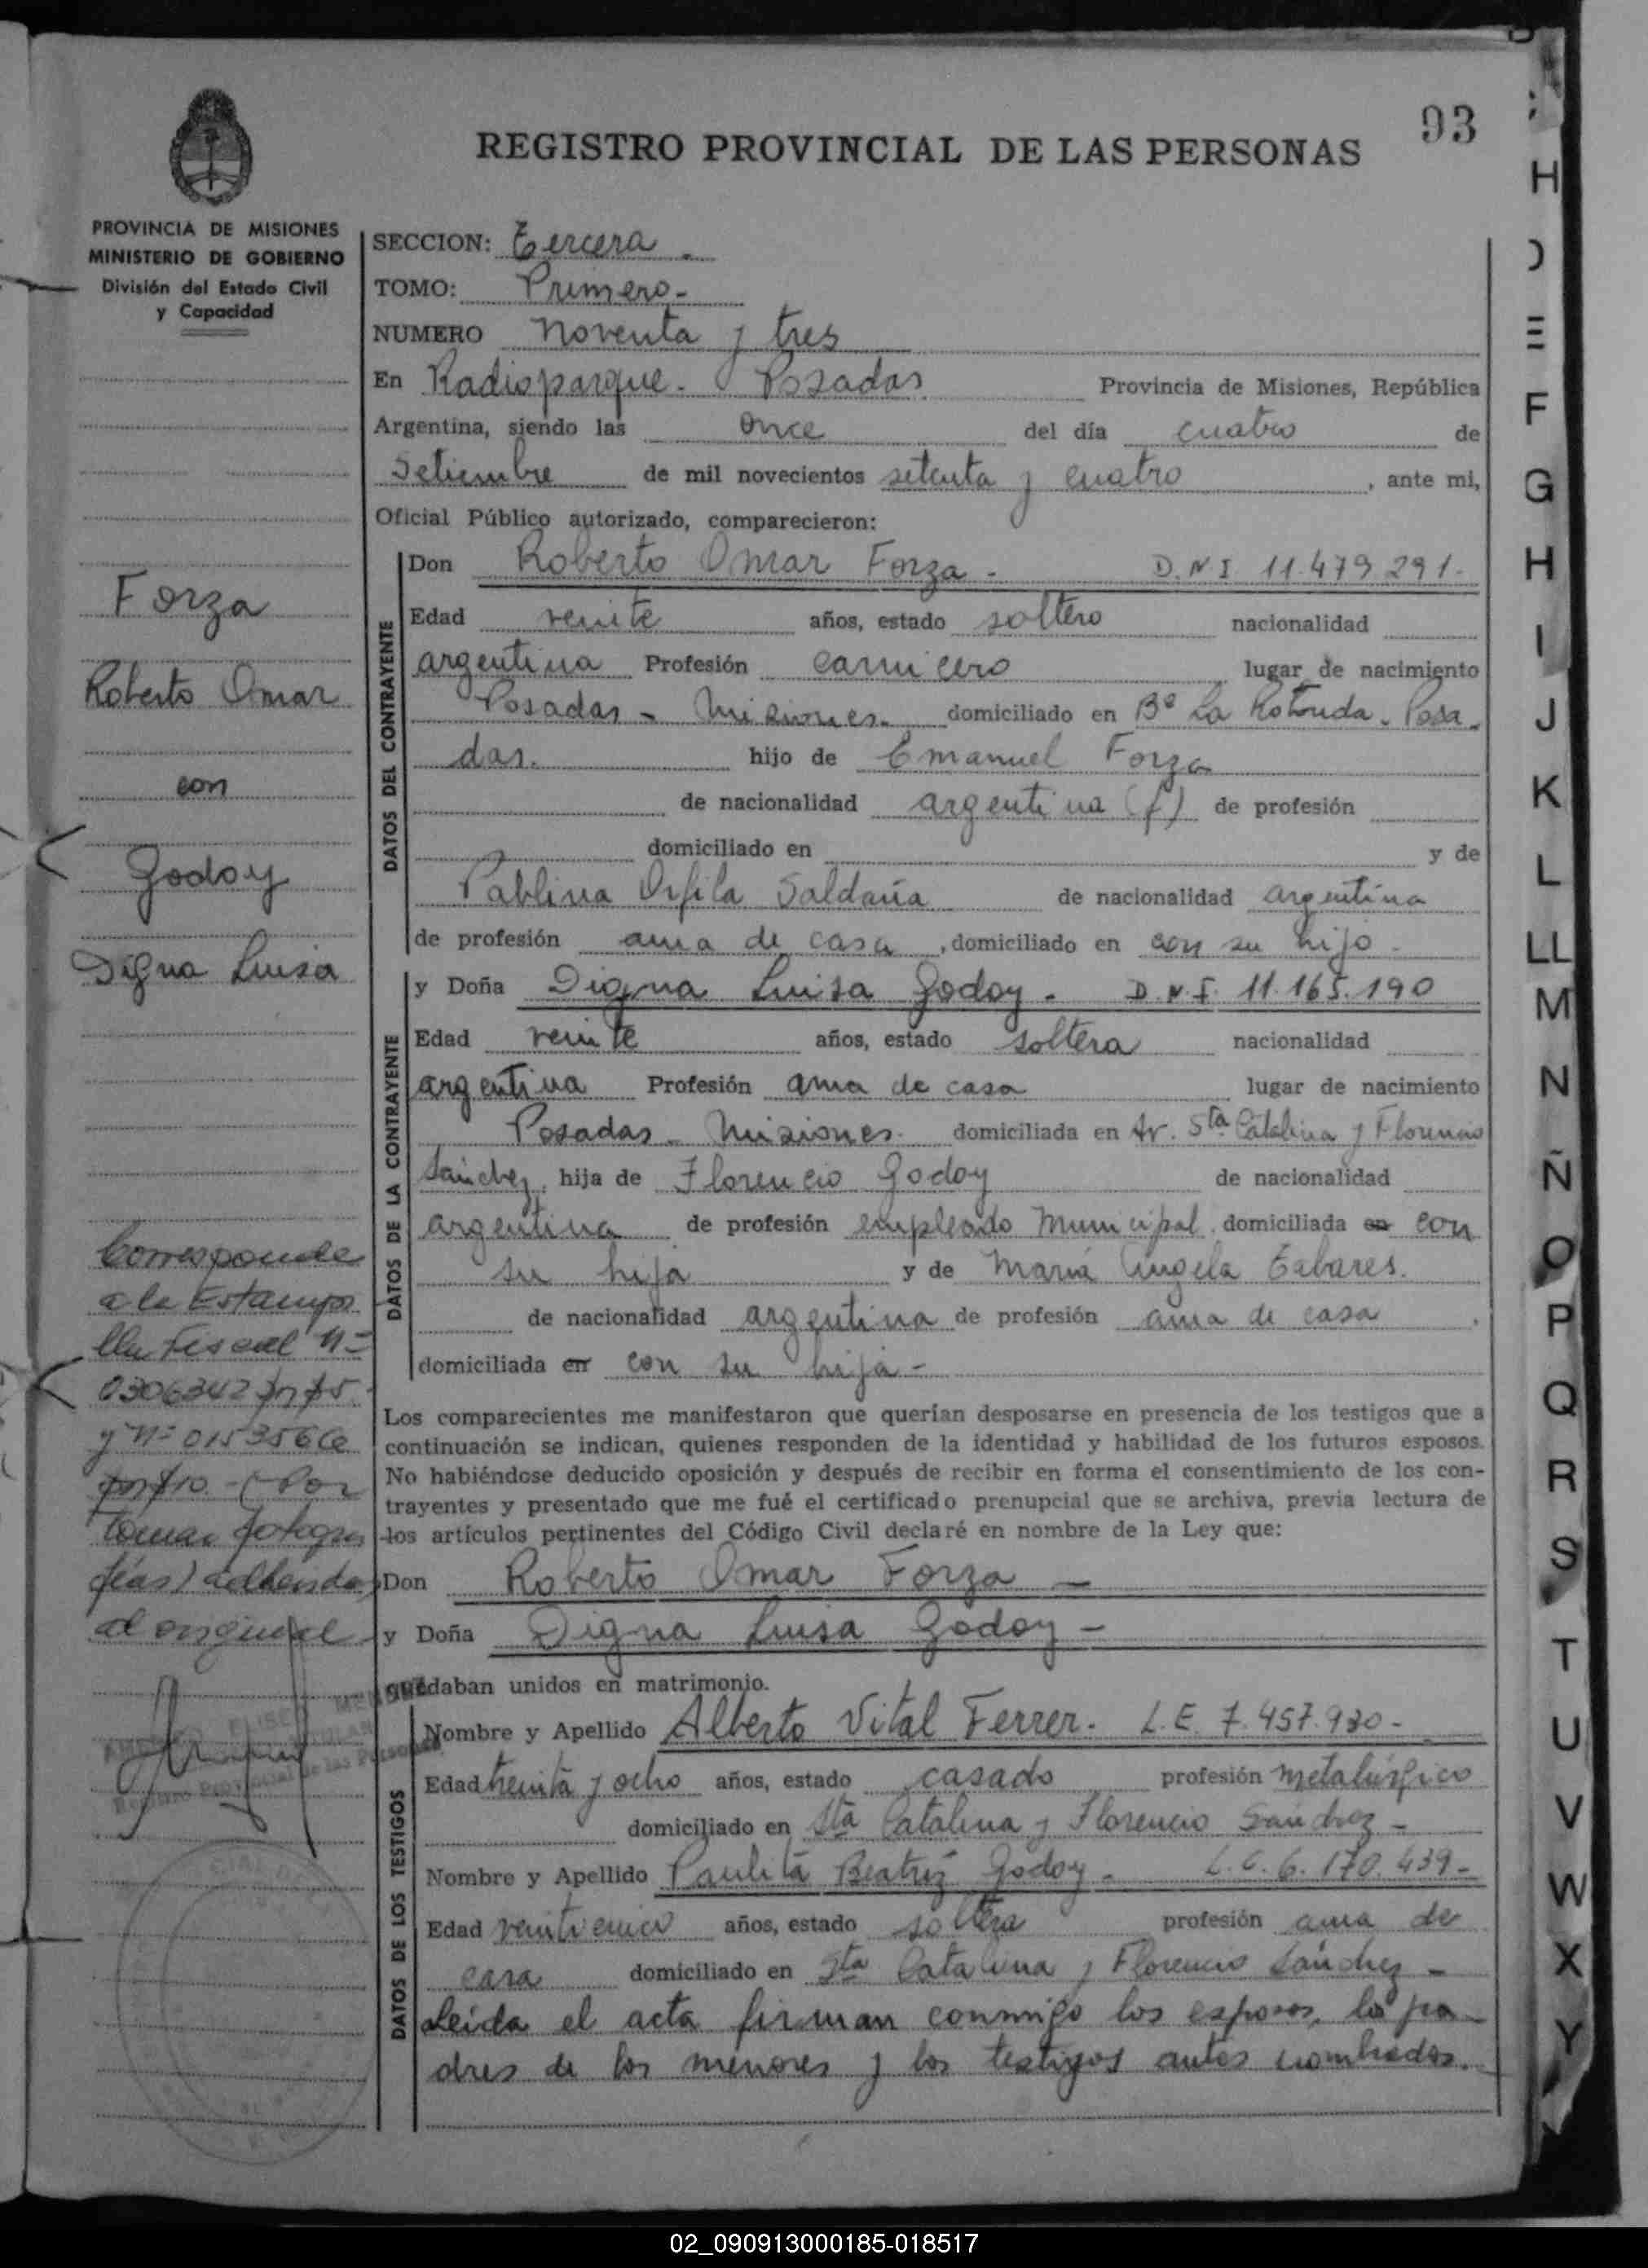 93
REGISTRO PROVINCIAL DE LAS PERSONAS
PROVINCIA DE MISIONES
MINISTERIO DE GOBIERNO
División del Estado Civil
y Capacidad
Forza
Roberto Omar
con
Godoy
Digna Luisa
Corresponde
a la Estampi
lla Fiscal Nº
0306342
y Nº 0153566
$10.- (Por
tomar fotogra
fías) adherida
al original
SECCION: Tercera.
TOMO: Primero-
NUMERO noventa y tres
En Radioparque. Posadas Provincia de Misiones, República
Argentina, siendo las once del día cuatro de
Setiembre de mil novecientos setenta y cuatro, ante mi,
Oficial Público autorizado, comparecieron:
DATOS DEL CONTRAYENTE
Don Roberto Omar Forza - D.N.I 11.479.291-
Edad veinte años, estado soltero nacionalidad
argentina Profesión carnicero lugar de nacimiento
Posadas - Misiones. domiciliado en Bº La Rotonda. Posa-
das. hijo de Emanuel Forza
de nacionalidad argentina (f) de profesión
domiciliado en y de
Pablina Orfila Saldaña de nacionalidad argentina
de profesión ama de casa, domiciliado en con su hijo.
DATOS DE LA CONTRAYENTE
y Doña Digna Luisa Godoy. D.N.I. 11.165.190
Edad veinte años, estado soltera nacionalidad
argentina Profesión ama de casa lugar de nacimiento
Posadas. Misiones. domiciliada en Av. Sta Catalina y Florencio
Sánchez, hija de Florencio Godoy de nacionalidad
argentina de profesión empleado Municipal. domiciliada en con
su hija y de María Angela Tabares.
de nacionalidad argentina de profesión ama de casa,
domiciliada en con su hija -
Los comparecientes me manifestaron que querían desposarse en presencia de los testigos que a
continuación se indican, quienes responden de la identidad y habilidad de los futuros esposos.
No habiéndose deducido oposición y después de recibir en forma el consentimiento de los con-
trayentes y presentado que me fué el certificado prenupcial que se archiva, previa lectura de
los artículos pertinentes del Código Civil declaré en nombre de la Ley que:
Don Roberto Omar Forza -
y Doña Digna Luisa Godoy -
quedaban unidos en matrimonio.
DATOS DE LOS TESTIGOS
Nombre y Apellido Alberto Vital Ferrer. L.E. 7.457.930-
Edad treinta y ocho años, estado casado profesión metalúrgico
domiciliado en Sta Catalina y Florencio Sanchez -
Nombre y Apellido Paulita Beatriz Godoy - L.C. 6.170.439-
Edad veinticinco años, estado soltera profesión ama de
casa domiciliado en Sta Catalina y Florencio Sánchez -
Leída el acta firman conmigo los esposos, los pa-
dres de los menores y los testigos antes nombrados.
H
F
G
H
I
J
K
L
LL
M
N
Ñ
O
P
Q
R
S
T
U
V
W
X
Y
02_090913000185-018517